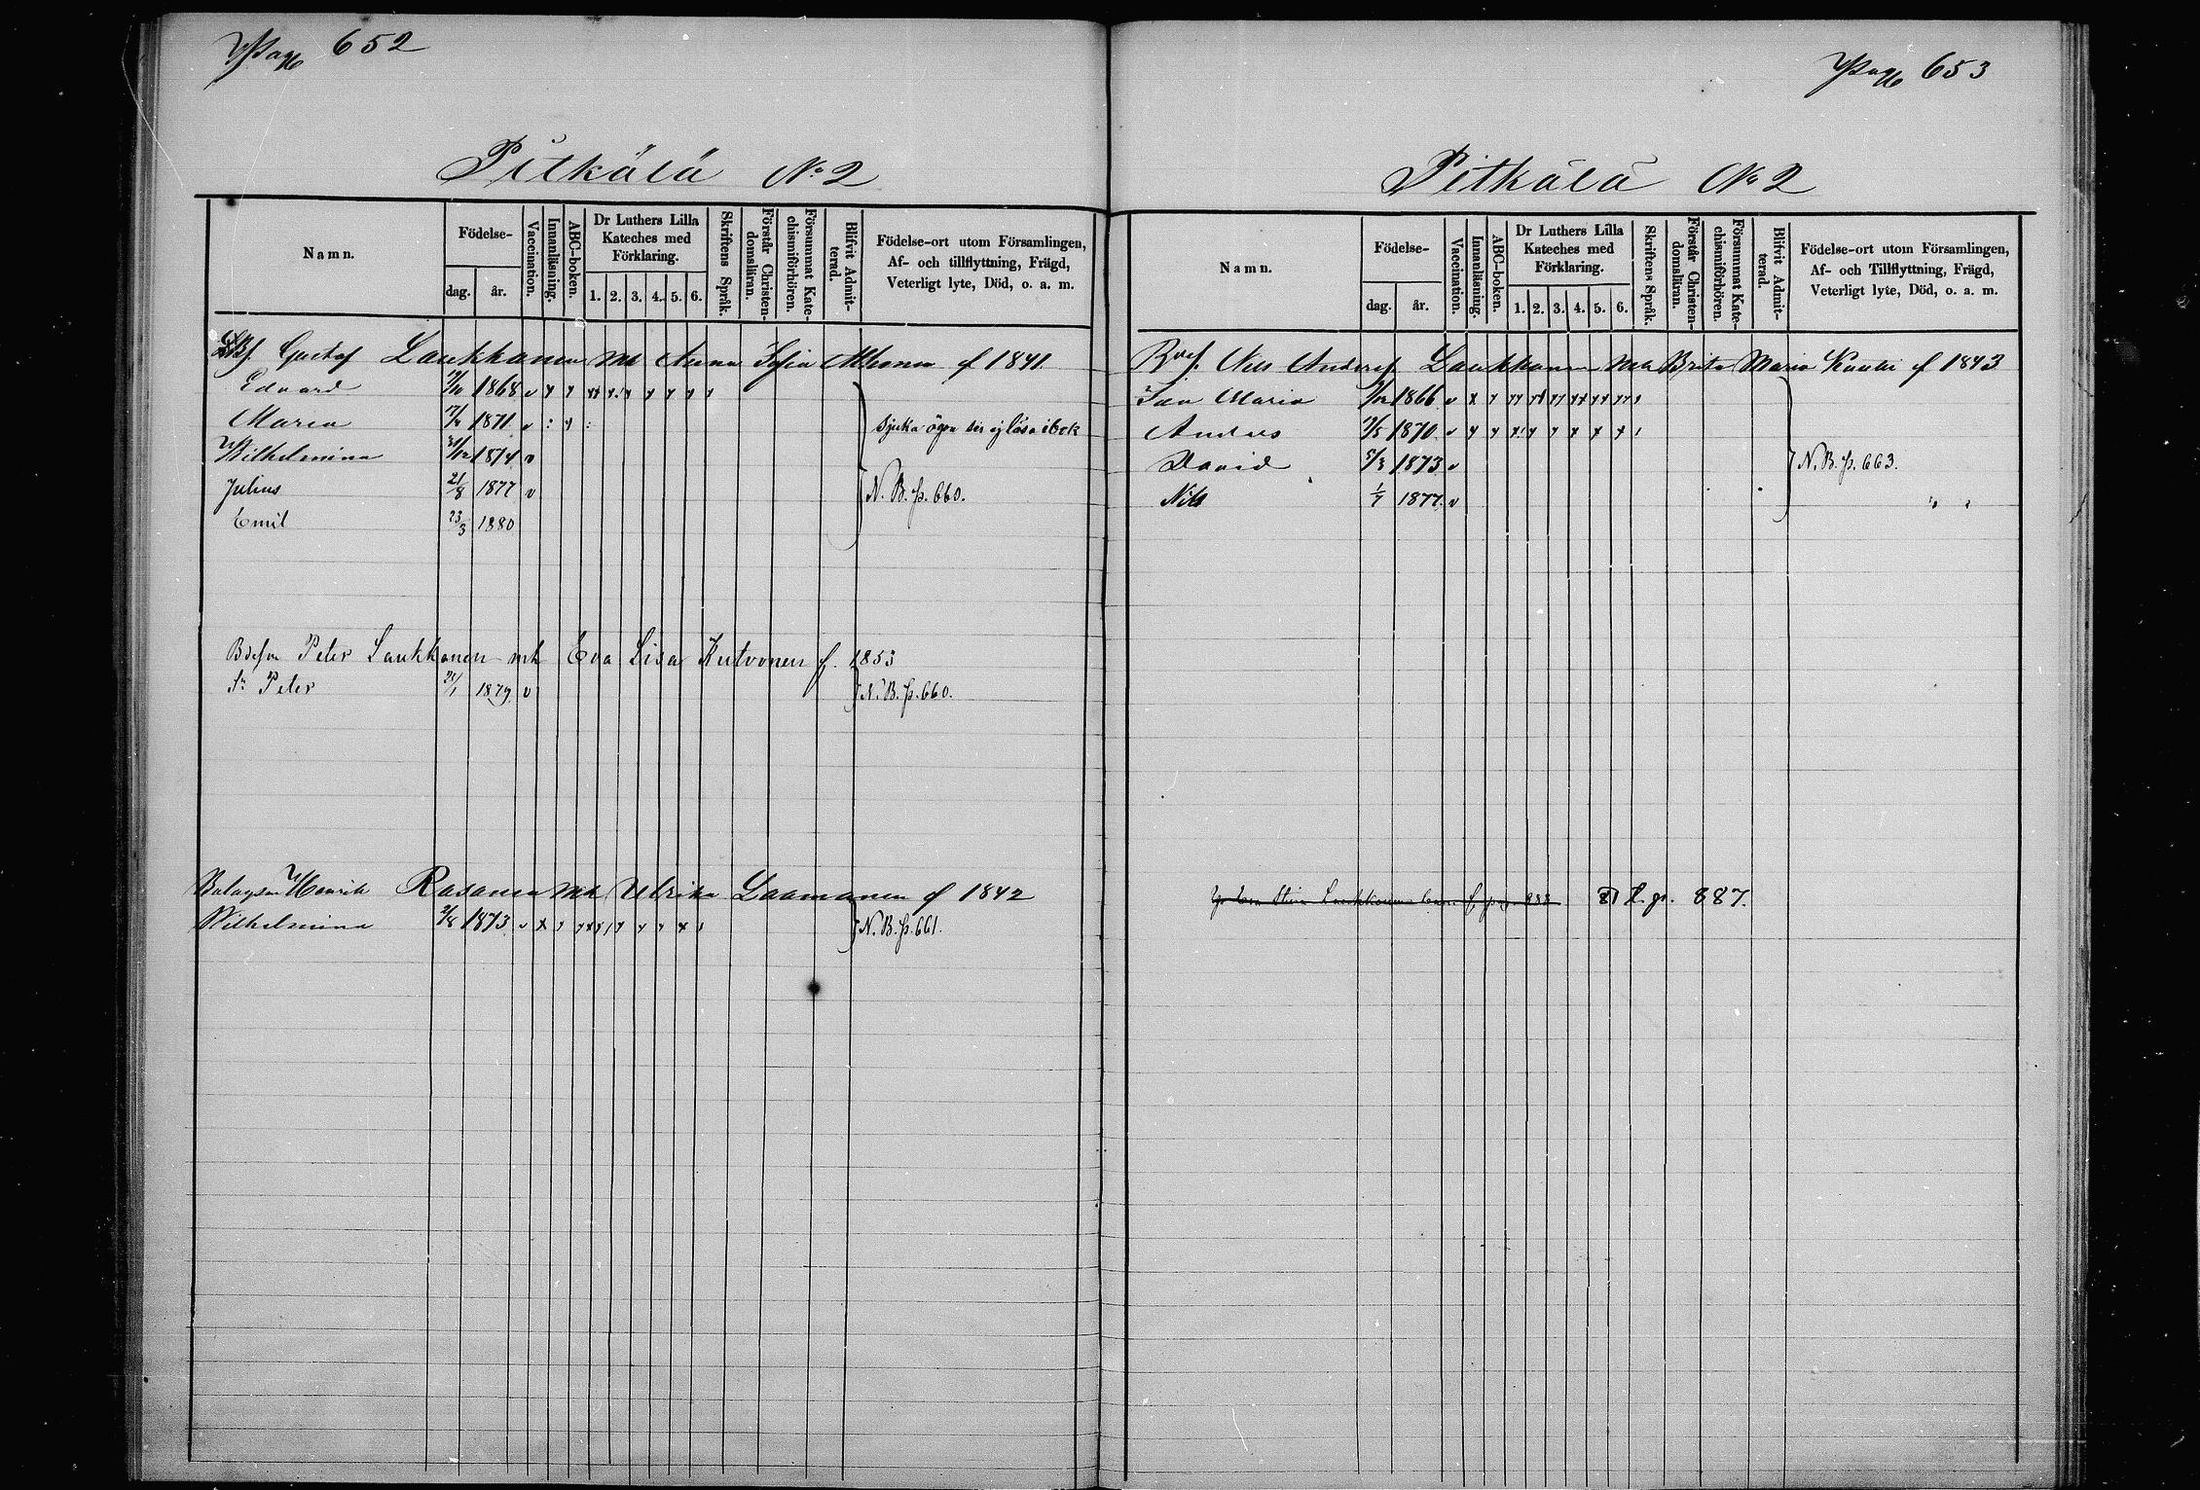 Pag 652
Pitkälä No 2
Namn.
Födelse-
dag.
år.
Vaccination.
Innanläsning.
ABC-boken.
Dr Luthers Lilla Kateches med Förklaring.
1. 2. 3. 4. 5. 6.
Skriftens Språk.
Förstår Christendomsläran.
Försummat Katechismiförhören.
Blifvit Admitterad.
Födelse-ort utom Församlingen, Af- och tillflyttning, Frägd, Veterligt lyte, Död, o. a. m.
Gustaf Laukkanen mh Anna Sofia f 1841
Edvard 1868 v
Maria 1871 v sjuka ögon ej läsa i bok
Wilhelmina 31/12 1874 v
Julius 21/8 1877 v N. B. p. 660.
Emil 23/3 1880
Peter Laukkanen mh Eva Lisa Kutvonen f. 1853
Sn Peter 1879 v N. B. p. 660.
Henrik Rasanen mh Ulrika Laamanen f 1842
Wilhelmina 2/8 1873 v N. B. p. 661.
Pag 653
Pitkälä No 2
Namn.
Födelse-
dag.
år.
Vaccination.
Innanläsning.
ABC-boken.
Dr Luthers Lilla Kateches med Förklaring.
1. 2. 3. 4. 5. 6.
Skriftens Språk.
Förstår Christendomsläran.
Försummat Katechismiförhören.
Blifvit Admitterad.
Födelse-ort utom Församlingen, Af- och Tillflyttning, Frägd, Veterligt lyte, Död, o. a. m.
Nils Andersf Laukkanen mh Brita Maria f 1843
Maria 1866 v
Anders 1870 v
David 5/3 1873 v N. B. p. 663.
Nils 1/7 1877 v " "
Eva Stina Laukkanen p. 887.